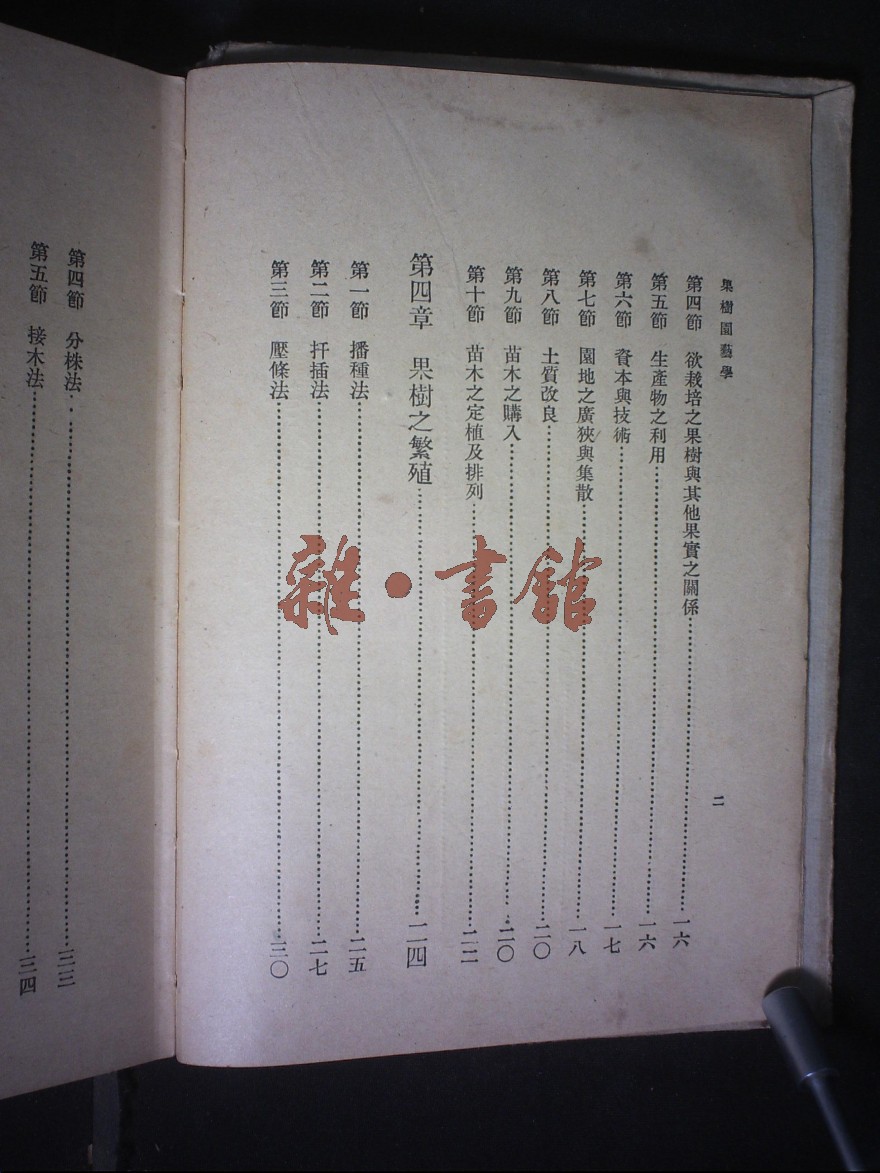 果樹園藝學
二
第四節　欲栽培之果樹與其他果實之關係……一六
第五節　生產物之利用……一六
第六節　資本與技術……一七
第七節　園地之廣狹與集散……一八
第八節　土質改良……二〇
第九節　苗木之購入……二〇
第十節　苗木之定植及排列……二二
第四章　果樹之繁殖……二四
第一節　播種法……二五
第二節　扦插法……二七
第三節　壓條法……三〇
第四節　分株法……三三
第五節　接木法……三四
雜・書館